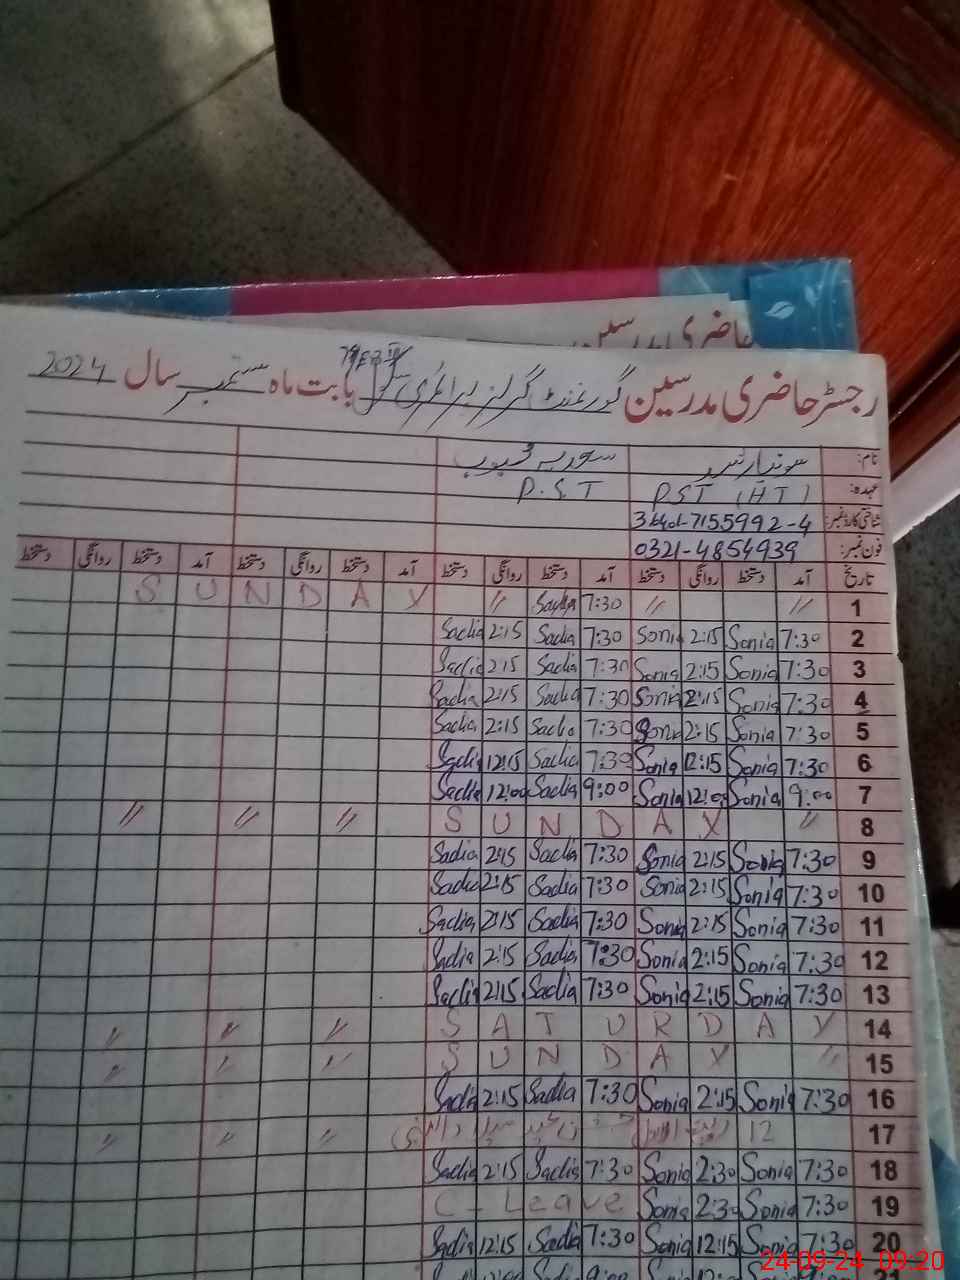 حاضری مدرسین
رجسٹر حاضری مدرسین گورنمنٹ گرلز پرائمری بابت ماہ ستمبر سال 2024
نام:
عہدہ: PST (HT) P.S.T
شناختی کارڈ نمبر: 7155992-4
فون نمبر: 0321-4854939
تاریخ آمد دستخط روانگی دستخط آمد دستخط روانگی دستخط آمد دستخط روانگی دستخط آمد دستخط روانگی دستخط
1 〃 〃 7:30 Sadia 〃 SUNDAY
2 7:30 Sonia 2:15 Sonia 7:30 Sadia 2:15 Sadia
3 7:30 Sonia 2:15 Sonia 7:30 Sadia 2:15 Sadia
4 7:30 Sonia 2:15 Sonia 7:30 Sadia 2:15 Sadia
5 7:30 Sonia 2:15 Sonia 7:30 Sadia 2:15 Sadia
6 7:30 Sonia 12:15 Sonia 7:30 Sadia 12:15 Sadia
7 9:00 Sonia 12:00 Sonia 9:00 Sadia 12:00 Sadia
8 〃 SUNDAY 〃 〃 〃
9 7:30 Sonia 2:15 Sonia 7:30 Sadia 2:15 Sadia
10 7:30 Sonia 2:15 Sonia 7:30 Sadia 2:15 Sadia
11 7:30 Sonia 2:15 Sonia 7:30 Sadia 2:15 Sadia
12 7:30 Sonia 2:15 Sonia 7:30 Sadia 2:15 Sadia
13 7:30 Sonia 2:15 Sonia 7:30 Sadia 2:15 Sadia
14 SATURDAY 〃 〃 〃
15 〃 SUNDAY 〃 〃 〃
16 7:30 Sonia 2:15 Sonia 7:30 Sadia 2:15 Sadia
17 12 ربیع الاول جشن عید میلاد النبی 〃 〃 〃
18 7:30 Sonia 2:30 Sonia 7:30 Sadia 2:15 Sadia
19 7:30 Sonia 2:30 Sonia C - Leave
20 7:30 Sonia 12:15 Sonia 7:30 Sadia 12:15 Sadia
24-09-24 09:20